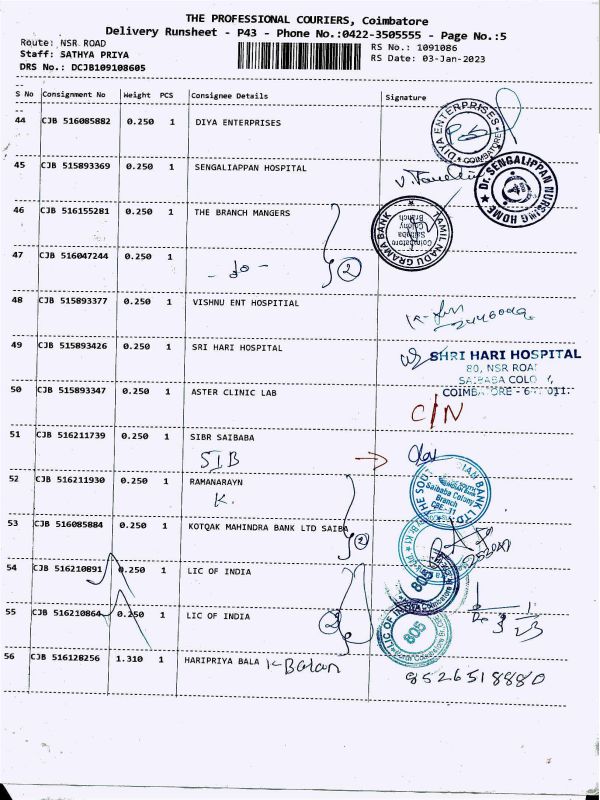 THE PROFESSIONAL COURIERS, Coimbatore
Delivery Runsheet - P43 - Phone No.:0422-3505555 - Page No.:5
Route: NSR ROAD
RS No.: 1091086
Staff: SATHYA PRIYA
RS Date: 03-Jan-2023
DRS No.: DCJB109108605
S No Consignment No Weight PCS Consignee Details Signature
44 CJB 516085882 0.250 1 DIYA ENTERPRISES
DIYA ENTERPRISES
COIMBATORE
45 CJB 515893369 0.250 1 SENGALIAPPAN HOSPITAL
Dr. SENGALIPPAN NURSING HOME
46 CJB 516155281 0.250 1 THE BRANCH MANGERS
TAMIL NADU GRAMA BANK
Saibaba
Colony
Branch
Coimbatore
47 CJB 516047244 0.250 1
- do -
2
48 CJB 515893377 0.250 1 VISHNU ENT HOSPITIAL
49 CJB 515893426 0.250 1 SRI HARI HOSPITAL
SHRI HARI HOSPITAL
80, NSR ROA
50 CJB 515893347 0.250 1 ASTER CLINIC LAB
C/N
51 CJB 516211739 0.250 1 SIBR SAIBABA
SIB
Saibaba Colony
Branch
CBE-11
52 CJB 516211930 0.250 1 RAMANARAYN
K.
53 CJB 516085884 0.250 1 KOTQAK MAHINDRA BANK LTD SAIBA
2
54 CJB 516210891 0.250 1 LIC OF INDIA
805
55 CJB 516210864 0.250 1 LIC OF INDIA
2
LIC OF
805
56 CJB 516128256 1.310 1 HARIPRIYA BALA K Balan
8526518880